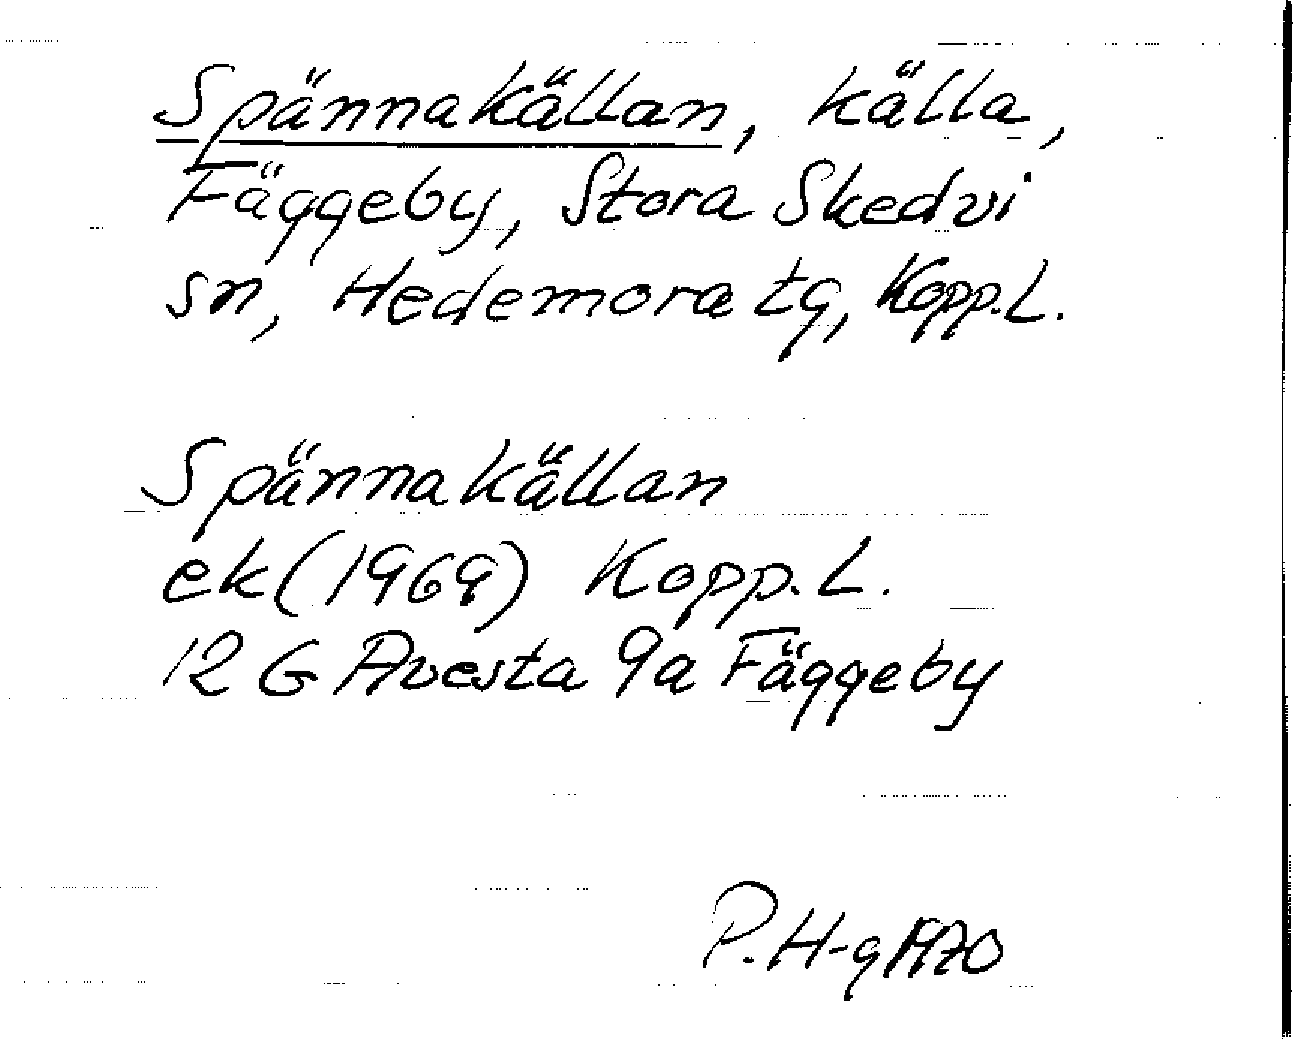 Spännakällan, källa,
Fäggeby, Stora Skedvi
sn, Hedemora tg, Kopp.L.
Spännakällan
ek (1969) Kopp. L.
12 G Avesta 9a Fäggeby
P. H-g 1970